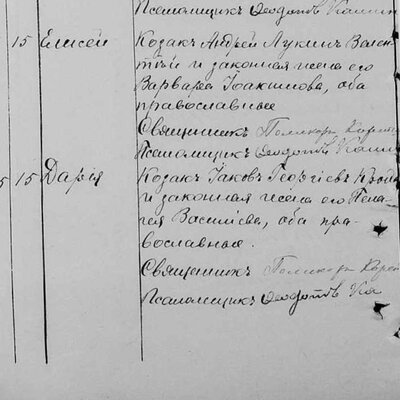 Псаломщикъ Ѳеодотъ
15 Елисей Козакъ Андрей Лукинъ Вален-
тѣй и законная жена его
Варвара Іоакимова, оба
православные
Священникъ Поликарпъ
Псаломщикъ Ѳеодотъ
5 15 Дарія Козакъ Іаковъ Георгіевъ
и законная жена его Пела-
гея Василіева, оба пра-
вославные.
Священникъ Поликарпъ
Псаломщикъ Ѳеодотъ